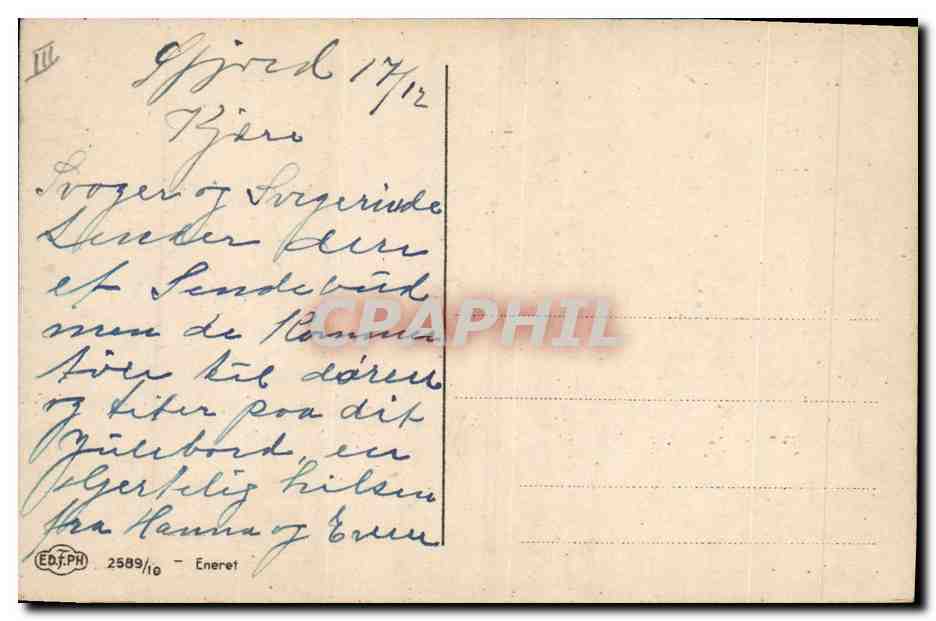 III
17/12
Kjære
Svoger og Svigerinde
Sender dere
et Sendebud
men de Kommer
til døren
og titer paa dit
Julebord, en
hjertelig hilsen
fra Hanna og Even
CRAPHIL
ED.F.PH 2589/10 - Eneret